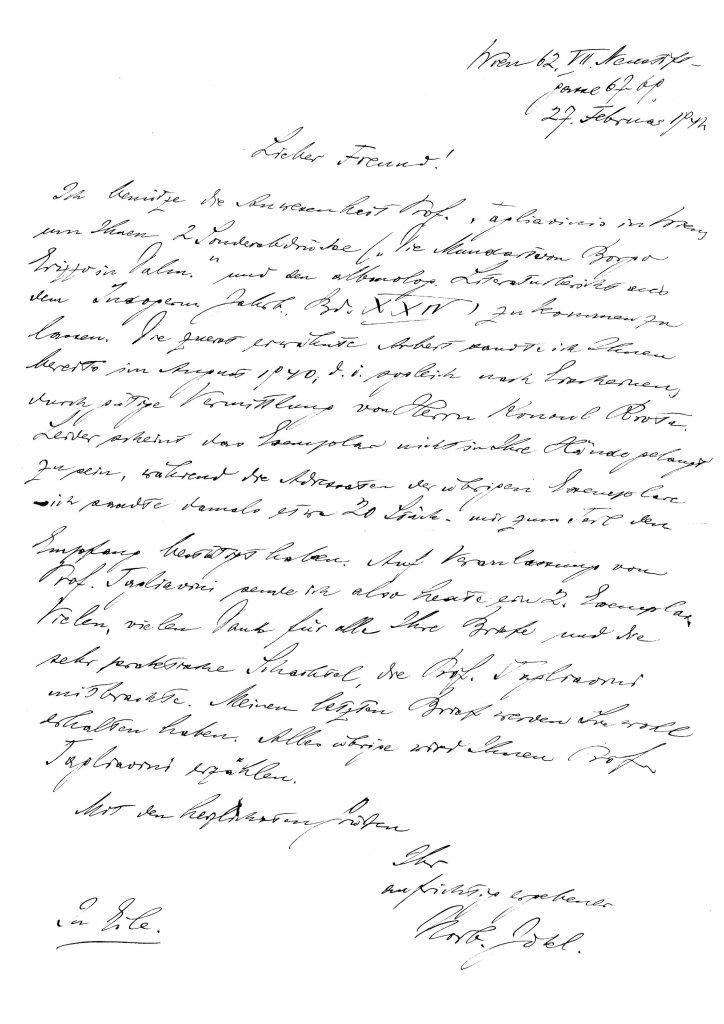 Wien 62, VII. Neustift-
gasse 67-69
27. Februar 1942
Lieber Freund!
Ich benütze die Anwesenheit Prof. Tagliavinis in Wien,
um Ihnen 2 Sonderabdrücke („Die Mundart von Borgo
Erizzo in Dalm." und den albanolog. Literaturbericht aus
dem Indogerm. Jahrb. Bd. XXIV) zukommen zu
lassen. Die zuerst erwähnte Arbeit sandte ich Ihnen
bereits im August 1940, d. i. sogleich nach Erscheinen,
durch gütige Vermittlung von Herrn Konsul Rrota.
Leider scheint das Exemplar nicht in Ihre Hände gelangt
zu sein, während die Adressaten der übrigen Exemplare
- ich sandte damals etwa 20 Stück - mir zum Teil den
Empfang bestätigt haben. Auf Veranlassung von
Prof. Tagliavini sende ich also heute ein 2. Exemplar.
Vielen, vielen Dank für alle Ihre Briefe und die
sehr praktische Schachtel, die Prof. Tagliavini
mitbrachte. Meinen letzten Brief werden Sie wohl
erhalten haben. Alles übrige wird Ihnen Prof.
Tagliavini erzählen.
Mit den herzlichsten Grüßen
Ihr
aufrichtig ergebener
Norb. Jokl.
In Eile.